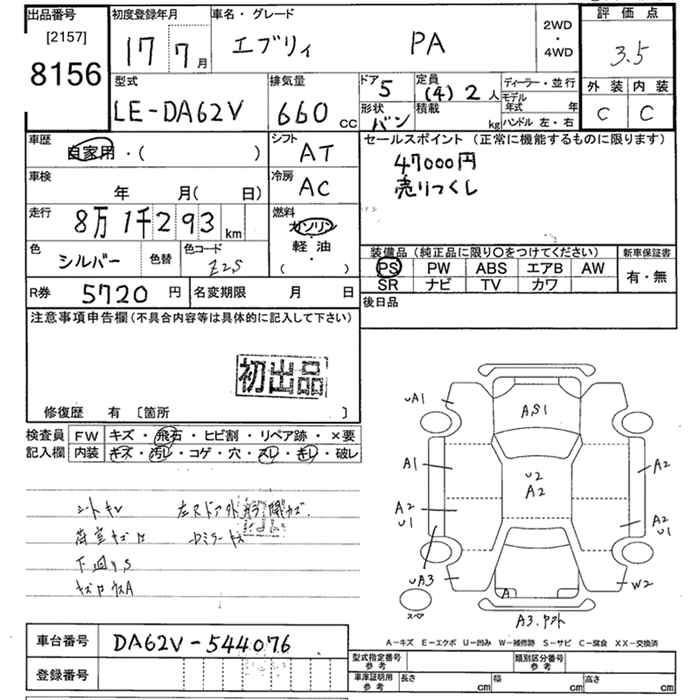 出品番号 [2157] 8156
初度登録年月 17 7月
車名・グレード エブリィ PA
2WD・4WD
評価点 3.5
外装 C 内装 C
型式 LE-DA62V
排気量 660 CC
ドア 5
形状 バン
定員 (4) 2人
積載 kg
ディーラー・並行
モデル年式 年
ハンドル 左・右
車歴 自家用・( )
シフト AT
セールスポイント (正常に機能するものに限ります)
47000円
売りつくし
車検 年 月( 日)
冷房 AC
走行 8万1千293 km
燃料 ガソリン・軽油・( )
色 シルバー 色替
色コード Z2S
装備品(純正品に限り○をつけてください)
PS PW ABS エアB AW
SR ナビ TV カワ
新車保証書 有・無
R券 5720円
名変期限 月 日
後日品
注意事項申告欄(不具合内容等は具体的に記入して下さい)
初出品
修復歴 有 [箇所 ]
検査員記入欄
FW キズ・飛石・ヒビ割・リペア跡・×要
内装 キズ・汚レ・コゲ・穴・スレ・キレ・破レ
シートキレ
荷室キズ
下廻りS
UA1
AS1
A1
U2
A2
A2
A2
U1
A2
U1
UA3
W2
A
スペア
A3.ヤクト
A-キズ E-エクボ U-凹み W-補修跡 S-サビ C-腐食 XX-交換済
車台番号 DA62V-544076
登録番号
型式指定番号 参考
類別区分番号 参考
車庫証明用 参考
長さ cm 幅 cm 高さ cm